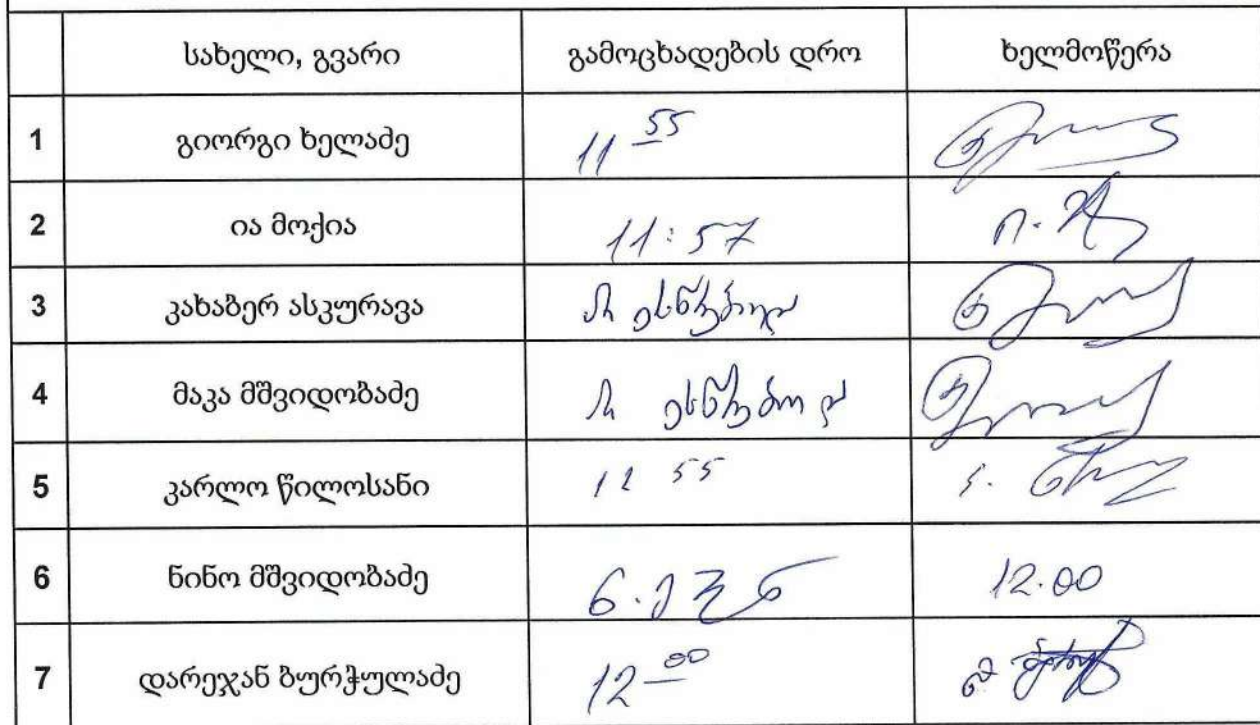 სახელი, გვარი გამოცხადების დრო ხელმოწერა
1 გიორგი ხელაძე 11 55
2 ია მოქია 11:57
3 კახაბერ ასკურავა არ ესწრებოდა
4 მაკა მშვიდობაძე არ ესწრებოდა
5 კარლო წილოსანი 12 55
6 ნინო მშვიდობაძე 12.00
7 დარეჯან ბურჭულაძე 12 00